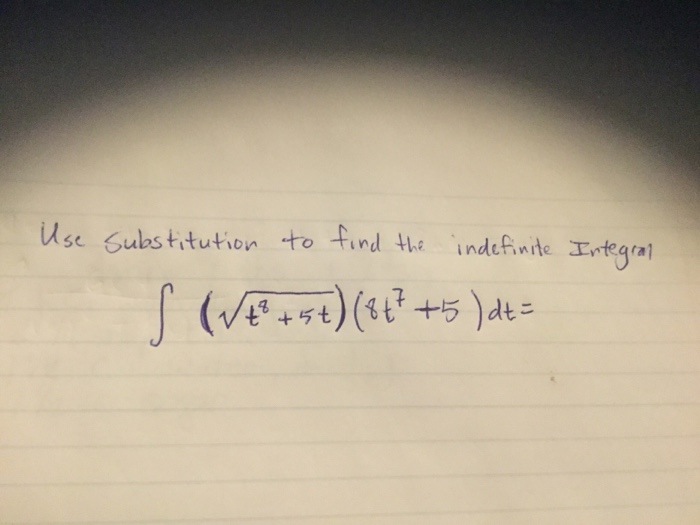 Use Substitution to find the indefinite Integral
∫ (√(t⁸ + 5t)) (8t⁷ + 5) dt =